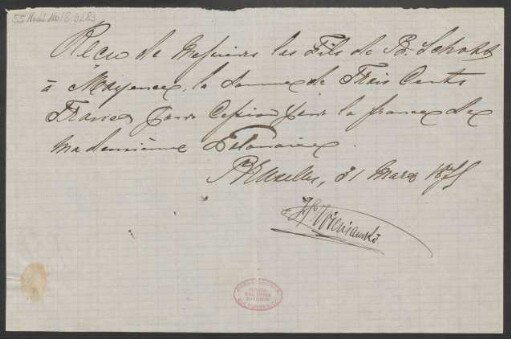 Recu de Messieurs les Fils de B. Schott
à Mayence, la somme de Trois Cents
Francs pour Copie pour la france de
ma deuxième Polonaise.
Bruxelles, 31 Mars 1875
H. Wieniawski